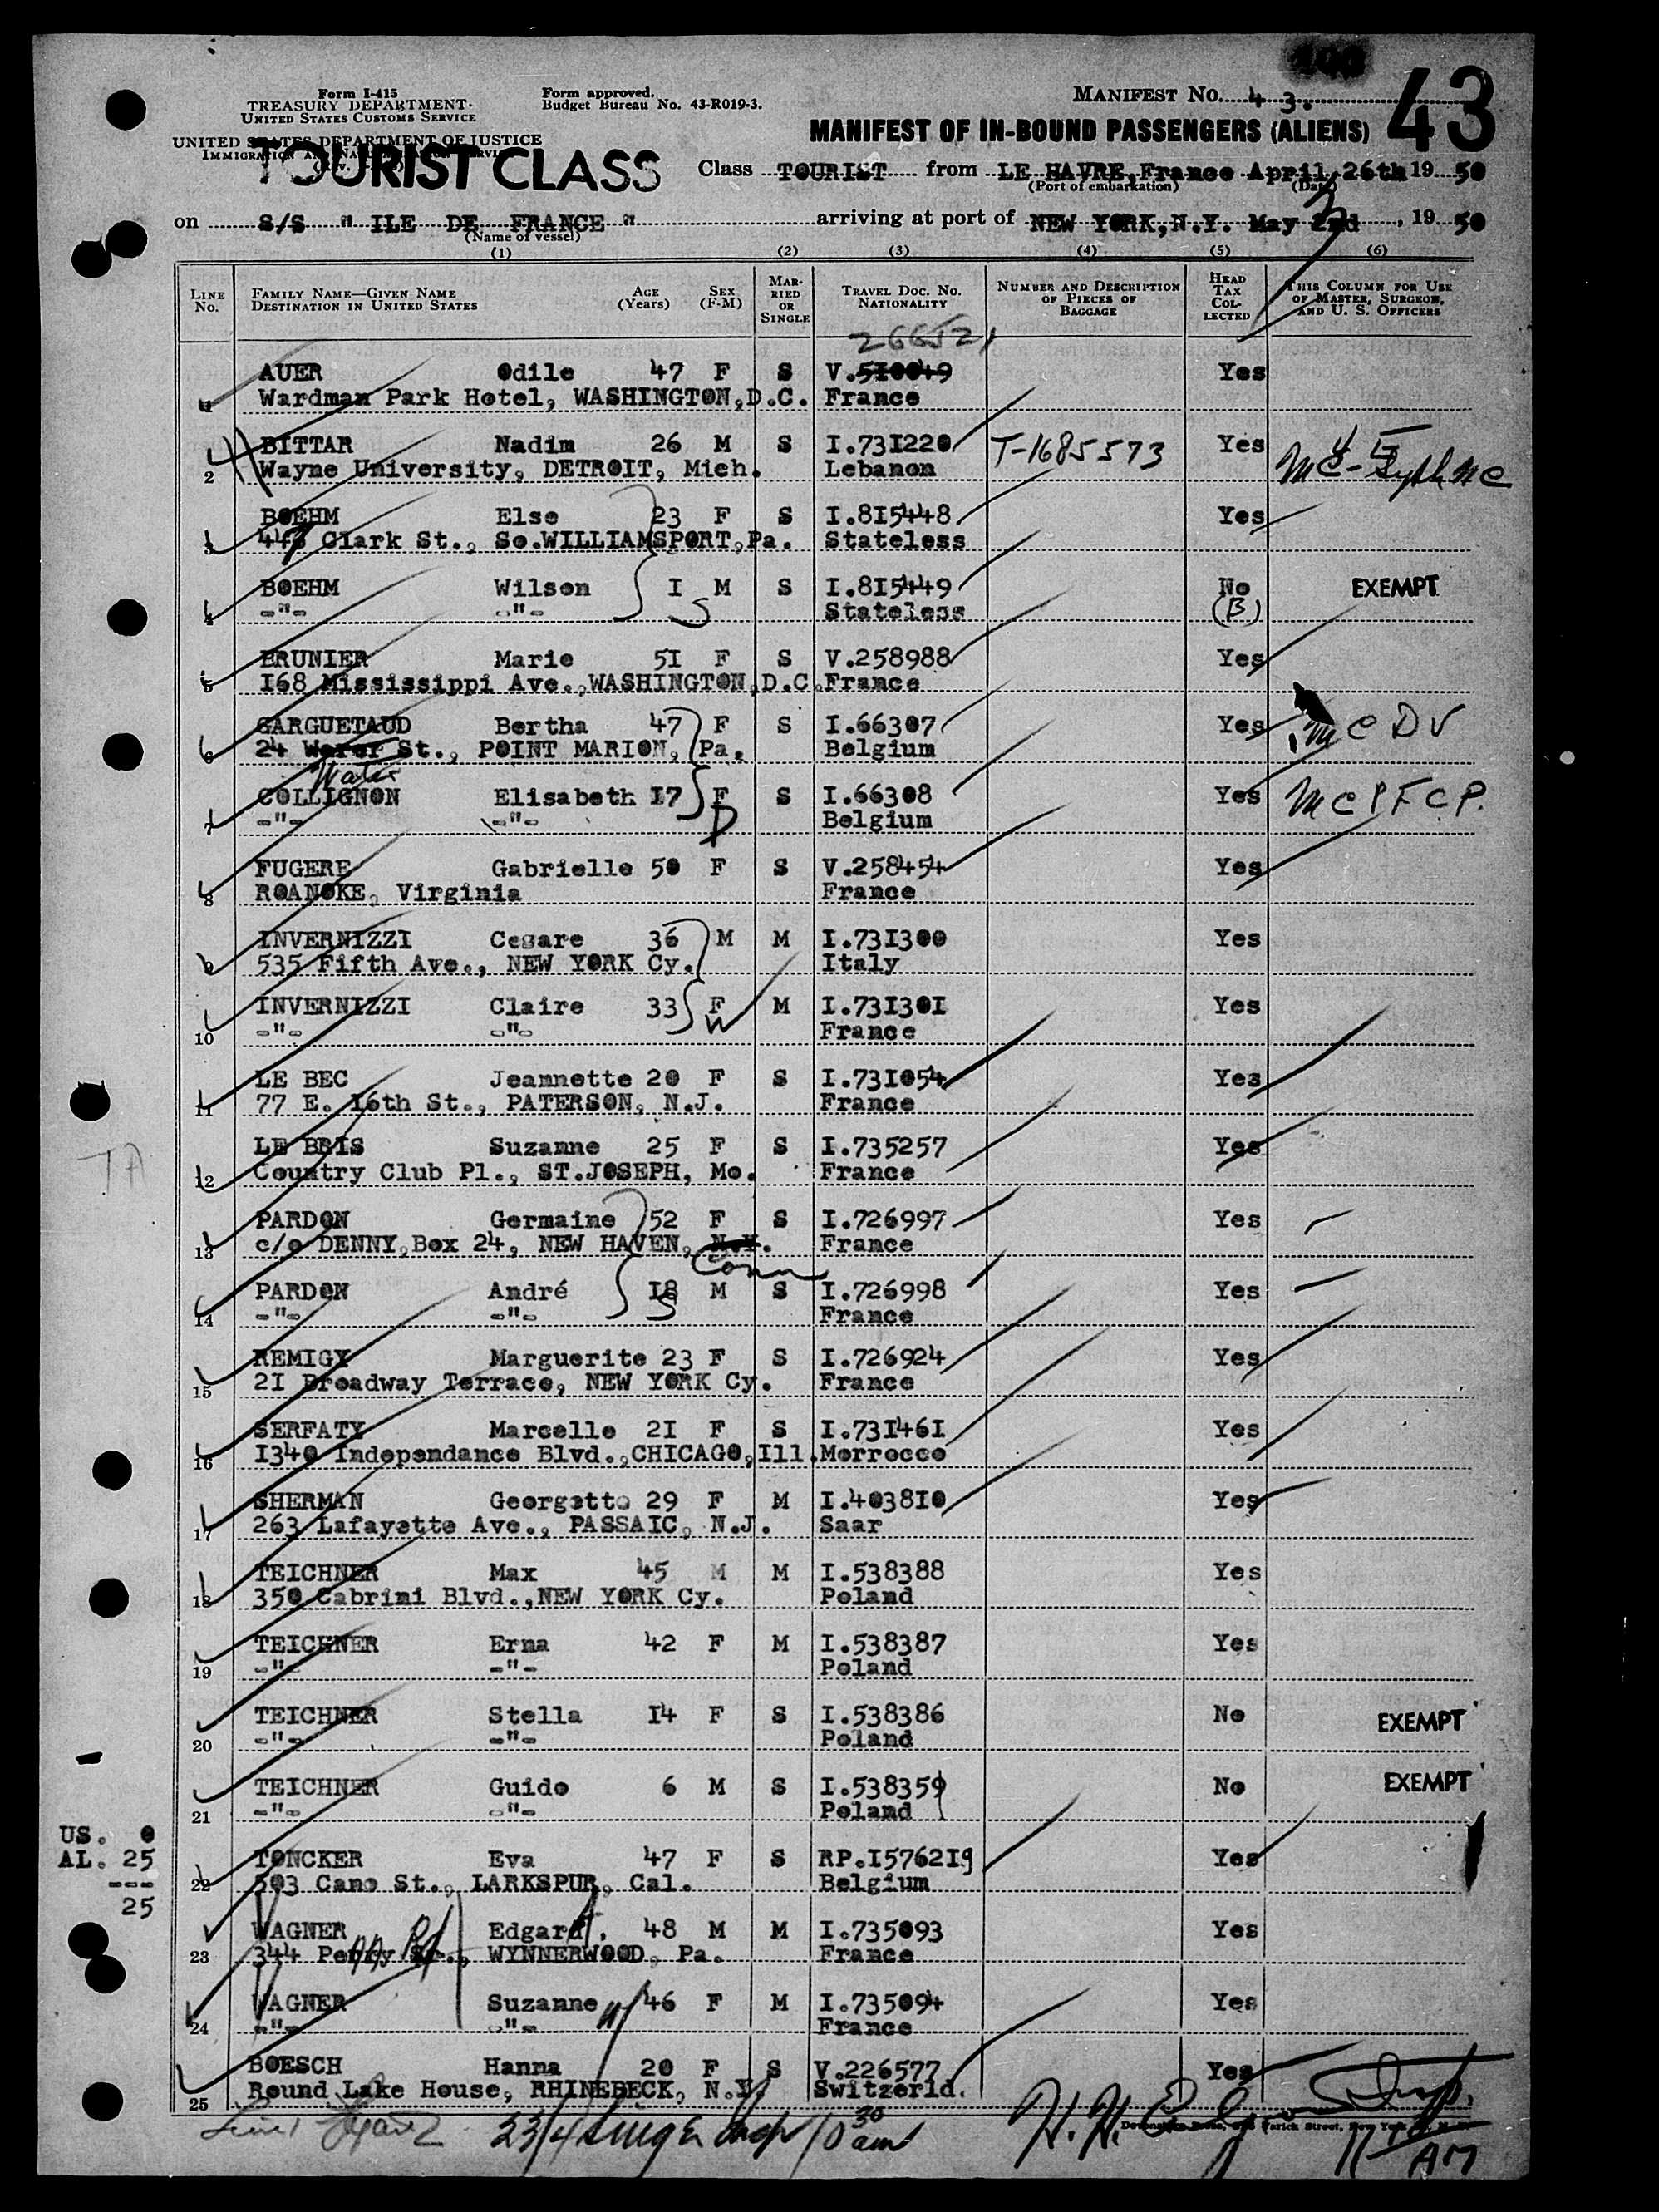 43
Form I-415
TREASURY DEPARTMENT
UNITED STATES CUSTOMS SERVICE
Form approved.
Budget Bureau No. 43-R019-3.
MANIFEST NO. 43.
UNITED STATES DEPARTMENT OF JUSTICE
MANIFEST OF IN-BOUND PASSENGERS (ALIENS)
TOURIST CLASS
Class TOURIST from LE HAVRE, France April 26th 19 50
(Port of embarkation) (Date)
on S/S " ILE DE FRANCE " arriving at port of NEW YORK,N.Y. May 2nd, 19 50
3
(Name of vessel)
(1) (2) (3) (4) (5) (6)
LINE No. FAMILY NAME—GIVEN NAME DESTINATION IN UNITED STATES AGE (Years) SEX (F-M) MARRIED OR SINGLE TRAVEL DOC. NO. NATIONALITY NUMBER AND DESCRIPTION OF PIECES OF BAGGAGE HEAD TAX COLLECTED THIS COLUMN FOR USE OF MASTER, SURGEON, AND U. S. OFFICERS
266521
AUER Odile 47 F S V.510049 Yes
1 Wardman Park Hotel, WASHINGTON,D.C. France
BITTAR Nadim 26 M S I.731220 T-1685573 Yes
2 Wayne University, DETROIT, Mich. Lebanon
BOEHM Else 23 F S I.815448 Yes
3 Clark St., So.WILLIAMSPORT,Pa. Stateless
BOEHM Wilson I M S I.815449 No EXEMPT
4 -"- -"- S Stateless (B)
BRUNIER Marie 51 F S V.258988 Yes
5 168 Mississippi Ave.,WASHINGTON,D.C. France
GARGUETAUD Bertha 47 F S I.66307 Yes MC DV
6 24 St., POINT MARION, Pa. Belgium
Water
COLLIGNON Elisabeth 17 F S I.66308 Yes MC PFCP.
7 -"- -"- D Belgium
FUGERE Gabrielle 50 F S V.258454 Yes
8 ROANOKE, Virginia France
INVERNIZZI Cesare 36 M M I.731300 Yes
9 535 Fifth Ave., NEW YORK Cy. Italy
INVERNIZZI Claire 33 F M I.731301 Yes
10 -"- -"- W France
LE BEC Jeannette 20 F S I.731054 Yes
11 77 E. 16th St., PATERSON, N.J. France
LE BRIS Suzanne 25 F S I.735257 Yes
TA
12 Country Club Pl., ST.JOSEPH, Mo. France
PARDON Germaine 52 F S I.726997 Yes
13 c/o DENNY,Box 24, NEW HAVEN, N.Y. France
Conn
PARDON André 18 M S I.726998 Yes
14 -"- -"- S France
REMIGY Marguerite 23 F S I.726924 Yes
15 21 Broadway Terrace, NEW YORK Cy. France
SERFATY Marcelle 21 F S I.731461 Yes
16 1340 Independance Blvd.,CHICAGO,Ill. Morrocco
SHERMAN Georgette 29 F M I.403810 Yes
17 263 Lafayette Ave., PASSAIC, N.J. Saar
TEICHNER Max 45 M M I.538388 Yes
18 350 Cabrini Blvd.,NEW YORK Cy. Poland
TEICHNER Erna 42 F M I.538387 Yes
19 -"- -"- Poland
TEICHNER Stella 14 F S I.538386 No EXEMPT
20 -"- -"- Poland
TEICHNER Guido 6 M S I.538359 No EXEMPT
21 -"- -"- Poland
US. 0
TONCKER Eva 47 F S RP.1576219 Yes
AL. 25
22 503 Cane St., LARKSPUR, Cal. Belgium
---
25
WAGNER Edgard, 48 M M I.735093 Yes
23 344 Rd WYNNERWOOD, Pa. France
WAGNER Suzanne 46 F M I.735094 Yes
24 -"- -"- France
BOESCH Hanna 20 F S V.226577 Yes
25 Round Lake House, RHINEBECK, N.Y. Switzerld.
23/4 10 30 am
H. H.
AM